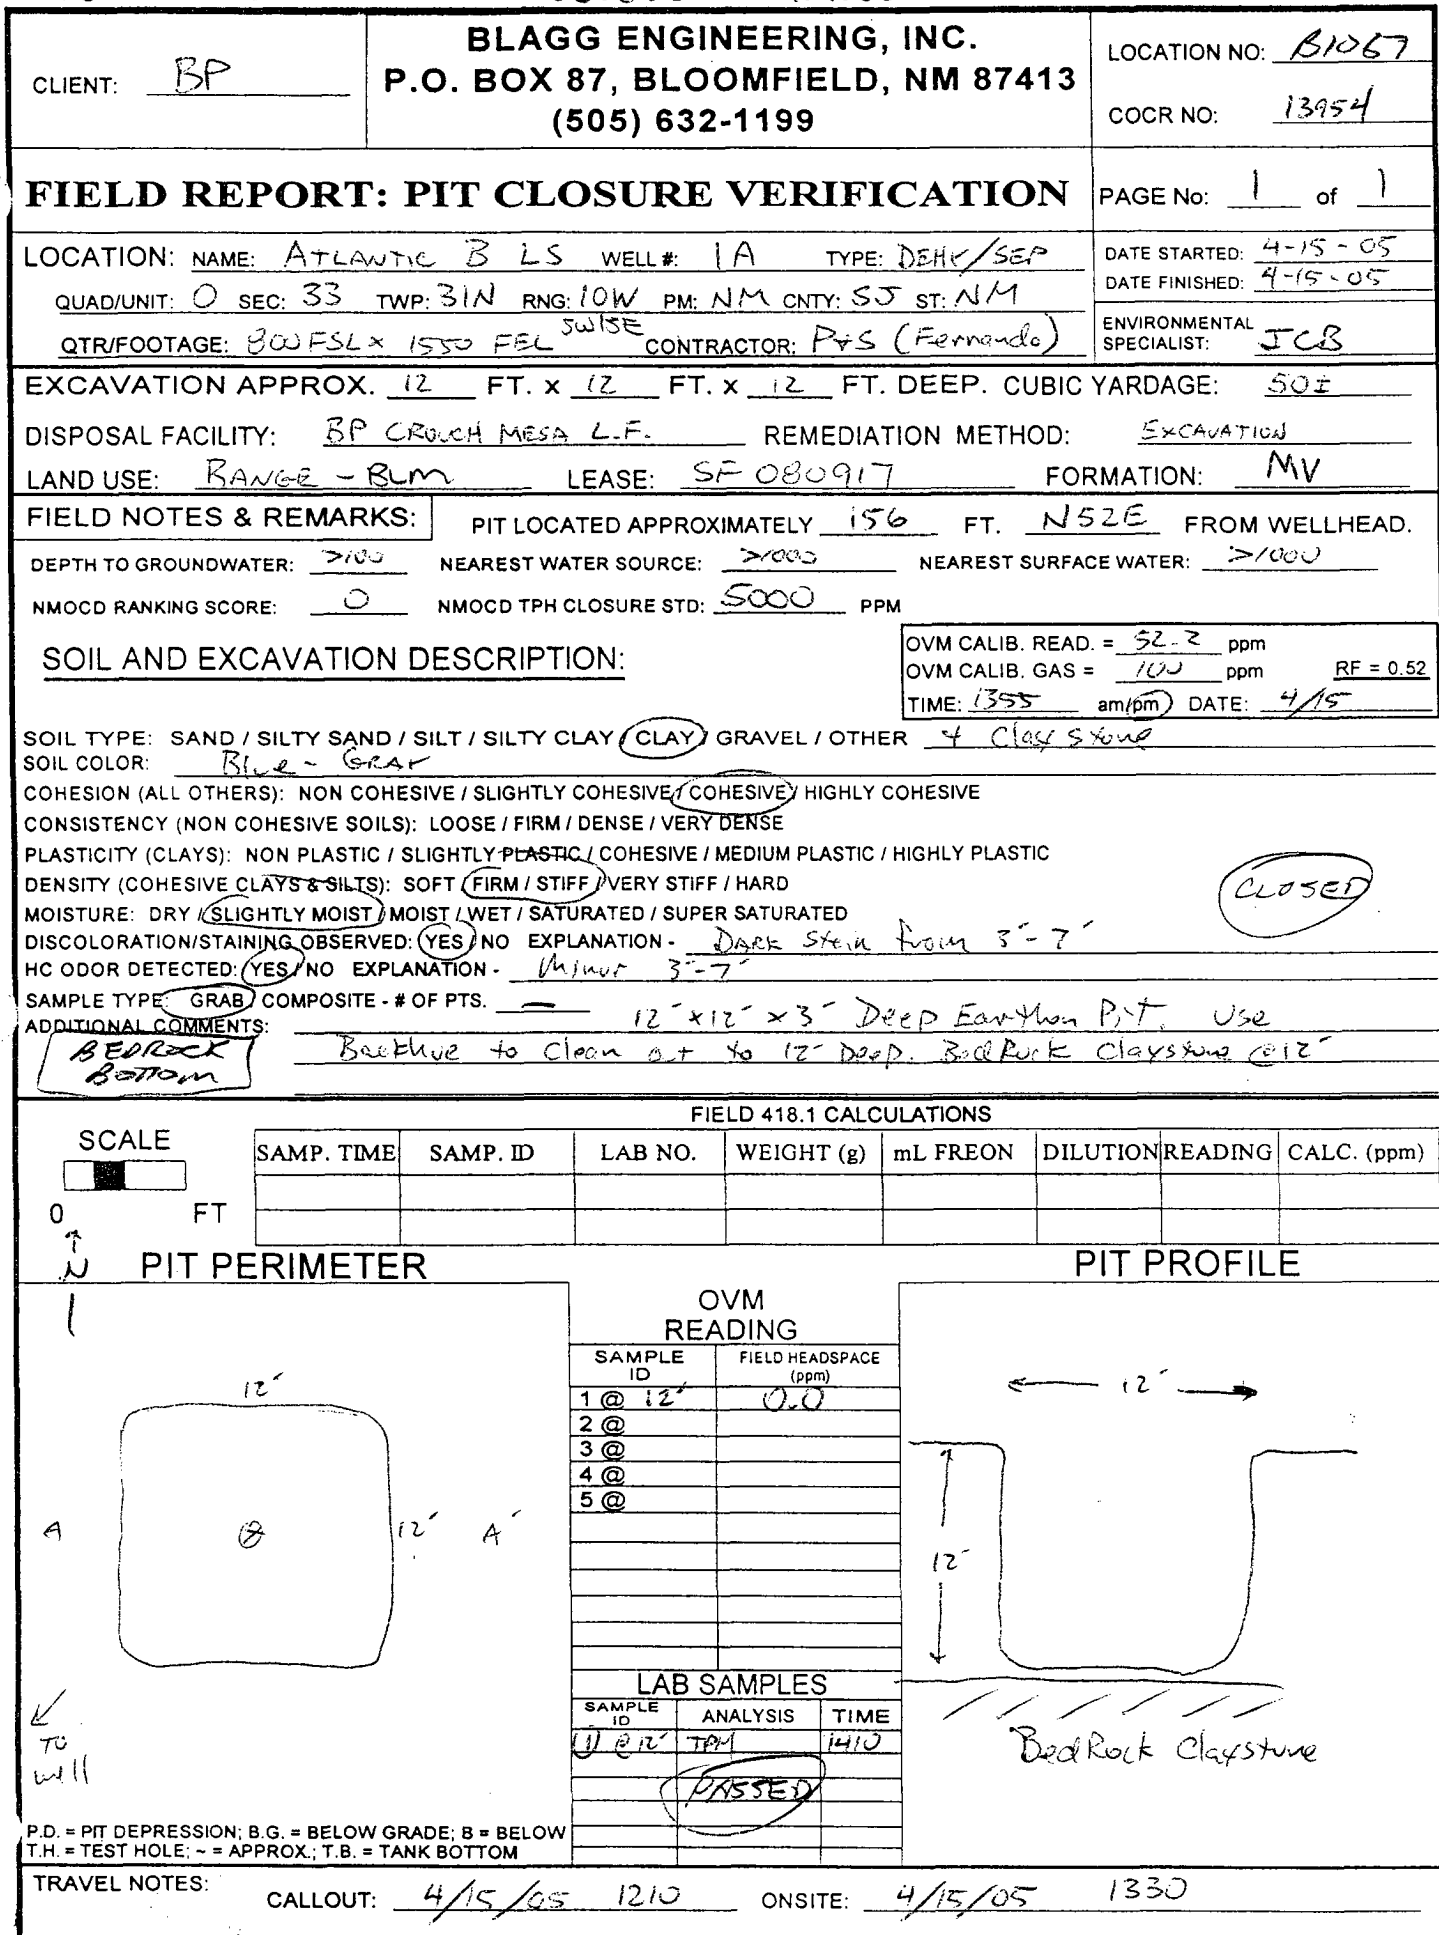 BLAGG ENGINEERING, INC.
P.O. BOX 87, BLOOMFIELD, NM 87413
(505) 632-1199
CLIENT: BP
LOCATION NO: B1067
COCR NO: 13954
FIELD REPORT: PIT CLOSURE VERIFICATION
PAGE No: 1 of 1
LOCATION: NAME: ATLANTIC B LS WELL #: 1A TYPE: DEHY/SEP
QUAD/UNIT: O SEC: 33 TWP: 31N RNG: 10W PM: NM CNTY: SJ ST: NM
QTR/FOOTAGE: 800 FSL x 1550 FEL SW/SE CONTRACTOR: P+S (Fernando)
DATE STARTED: 4-15-05
DATE FINISHED: 4-15-05
ENVIRONMENTAL SPECIALIST: JCB
EXCAVATION APPROX. 12 FT. x 12 FT. x 12 FT. DEEP. CUBIC YARDAGE: 50±
DISPOSAL FACILITY: BP CROUCH MESA L.F. REMEDIATION METHOD: EXCAVATION
LAND USE: RANGE - BLM LEASE: SF 080917 FORMATION: MV
FIELD NOTES & REMARKS: PIT LOCATED APPROXIMATELY 156 FT. N52E FROM WELLHEAD.
DEPTH TO GROUNDWATER: >100 NEAREST WATER SOURCE: >1000 NEAREST SURFACE WATER: >1000
NMOCD RANKING SCORE: 0 NMOCD TPH CLOSURE STD: 5000 PPM
SOIL AND EXCAVATION DESCRIPTION:
OVM CALIB. READ. = 52.2 ppm
OVM CALIB. GAS = 100 ppm RF = 0.52
TIME: 1355 am/pm DATE: 4/15
SOIL TYPE: SAND / SILTY SAND / SILT / SILTY CLAY / CLAY / GRAVEL / OTHER + Claystone
SOIL COLOR: Blue - GRAY
COHESION (ALL OTHERS): NON COHESIVE / SLIGHTLY COHESIVE / COHESIVE / HIGHLY COHESIVE
CONSISTENCY (NON COHESIVE SOILS): LOOSE / FIRM / DENSE / VERY DENSE
PLASTICITY (CLAYS): NON PLASTIC / SLIGHTLY PLASTIC / COHESIVE / MEDIUM PLASTIC / HIGHLY PLASTIC
DENSITY (COHESIVE CLAYS & SILTS): SOFT / FIRM / STIFF / VERY STIFF / HARD
MOISTURE: DRY / SLIGHTLY MOIST / MOIST / WET / SATURATED / SUPER SATURATED
CLOSED
DISCOLORATION/STAINING OBSERVED: YES / NO EXPLANATION - DARK Stain from 3'-7'
HC ODOR DETECTED: YES / NO EXPLANATION - Minor 3'-7'
SAMPLE TYPE: GRAB / COMPOSITE - # OF PTS. —
ADDITIONAL COMMENTS: 12' x 12' x 3' Deep Earthen Pit. Use
Backhoe to Clean out to 12' Deep. BedRock Claystone @ 12'
BEDROCK
BOTTOM
FIELD 418.1 CALCULATIONS
SCALE
0 FT
SAMP. TIME SAMP. ID LAB NO. WEIGHT (g) mL FREON DILUTION READING CALC. (ppm)
N
PIT PERIMETER
PIT PROFILE
OVM
READING
SAMPLE ID FIELD HEADSPACE (ppm)
1 @ 12' 0.0
2 @
3 @
4 @
5 @
12'
12'
A
A'
TO
well
12'
12'
BedRock Claystone
LAB SAMPLES
SAMPLE ID ANALYSIS TIME
(1) @ 12' TPH 1410
PASSED
P.D. = PIT DEPRESSION; B.G. = BELOW GRADE; B = BELOW
T.H. = TEST HOLE; ~ = APPROX.; T.B. = TANK BOTTOM
TRAVEL NOTES: CALLOUT: 4/15/05 1210 ONSITE: 4/15/05 1330